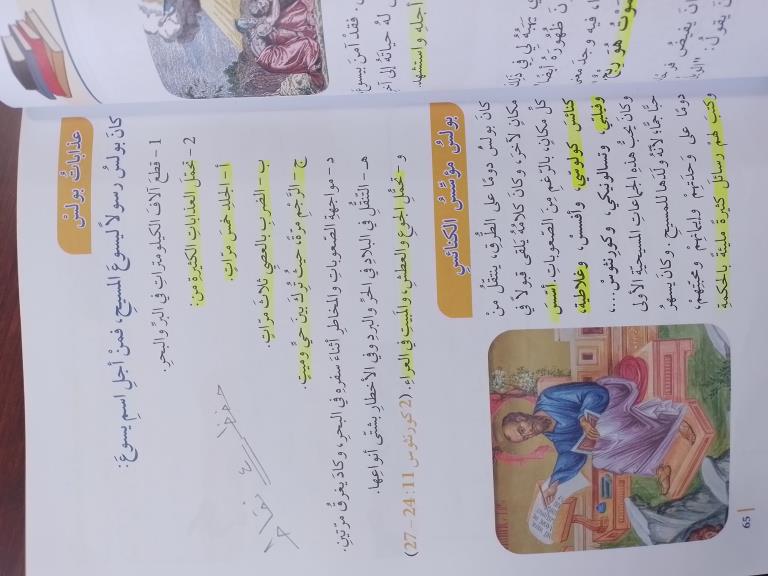 عذاباتُ بولسَ
كانَ بولسُ رسولًا ليسوعَ المسيحِ، فمنْ أجلِ اسمِ يسوعَ:
1 - قطعَ آلافَ الكيلومتراتِ في البرِّ والبحرِ.
2 - تحمَّلَ العذاباتِ الكثيرةَ من:
أ - الجلدِ خمسَ مراتٍ.
ب - الضربِ بالعصيِ ثلاثَ مراتٍ.
ج - الرَّجْمِ مرَّةً، حيثُ تُركَ بينَ حيٍّ وميتٍ.
د - مواجهةِ الصعوباتِ والمخاطرِ أثناءَ سفرِهِ في البحرِ، وكادَ يغرقُ مرتينِ.
هـ - التنقُّلِ في البلادِ في الحرِّ والبردِ وفي الأخطارِ بشتّى أنواعِها.
و - تحمُّلِ الجوعِ والعطشِ، والمبيتِ في العراءِ. (2 كورنثوس 11: 24 - 27)
بولسُ مؤسِّسُ الكنائسِ
كانَ بولسُ دومًا على الطُّرقِ، يتنقلُ منْ
مكانٍ لآخرَ، وكانَ كلامُهُ يلقى قبولًا في
كلِّ مكانٍ، بالرّغمِ منَ الصّعوباتِ. أسّسَ
كنائسَ كولوسّي، وأفسسَ، وغلاطيةَ،
وفيلبّي، وتسالونيكي، وكورنثوسَ...،
وكانَ يحبُّ هذهِ الجماعاتِ المسيحيّةَ الأولى
حبًّا جمًّا؛ لأنّهُ ولَدَها للمسيحِ. وكانَ يسهرُ
دومًا على وَحدتِهِم وإيمانِهِمْ ومحبَّتِهِم،
وكتبَ لهُمْ رسائلَ كثيرةً مليئةً بالحكمةِ
65